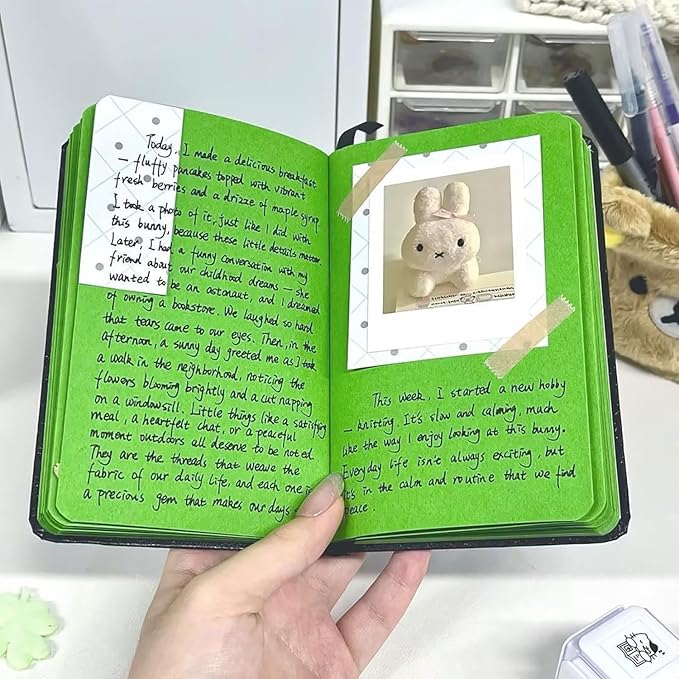 Today, I made a delicious breakfast
— fluffy pancakes topped with vibrant
fresh berries and a drizze of maple syrup
I took a photo of it, just like I did with
this bunny, because these little details matter
Later, I had a funny conversation with my
friend about our childhood dreams — she
wanted to be an astonaut, and I dreamed
of owning a bookstore. We laughed so hard
that tears came to our eyes. Then, in the
afternoon, a sunny day greeted me as I took
a walk in the neghborhood, noticing the
flowers blooming brightly and a cut napping
on a windowsill. Little things like a satisfying
meal, a heartfelt chat, or a peaceful
moment outdoors all deserve to be noted.
They are the threads that weave the
fabric of our daily life, and each one is
a precious gem that makes our days
This week, I started a new hobby
— knitting. It's slow and calming, much
like the way I enjoy looking at this bunny.
Everyday life isn't always exciting, but
it's in the calm and routine that we find
peace.